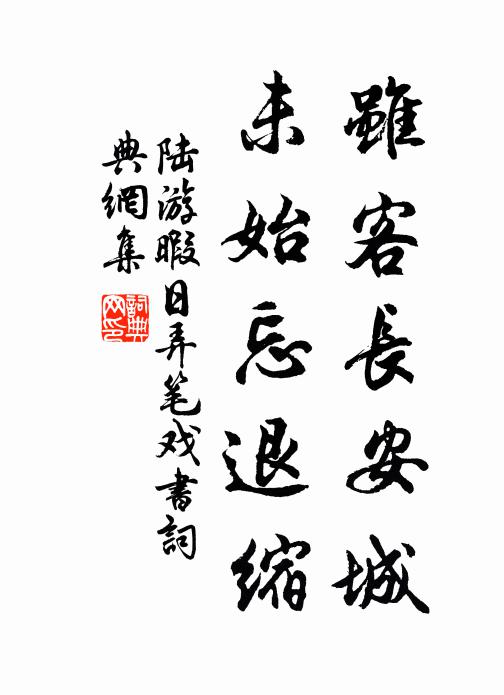 雖客長安城
未始忘退縮
陆游暇日弄笔戏書詞
典網集
詞典网印